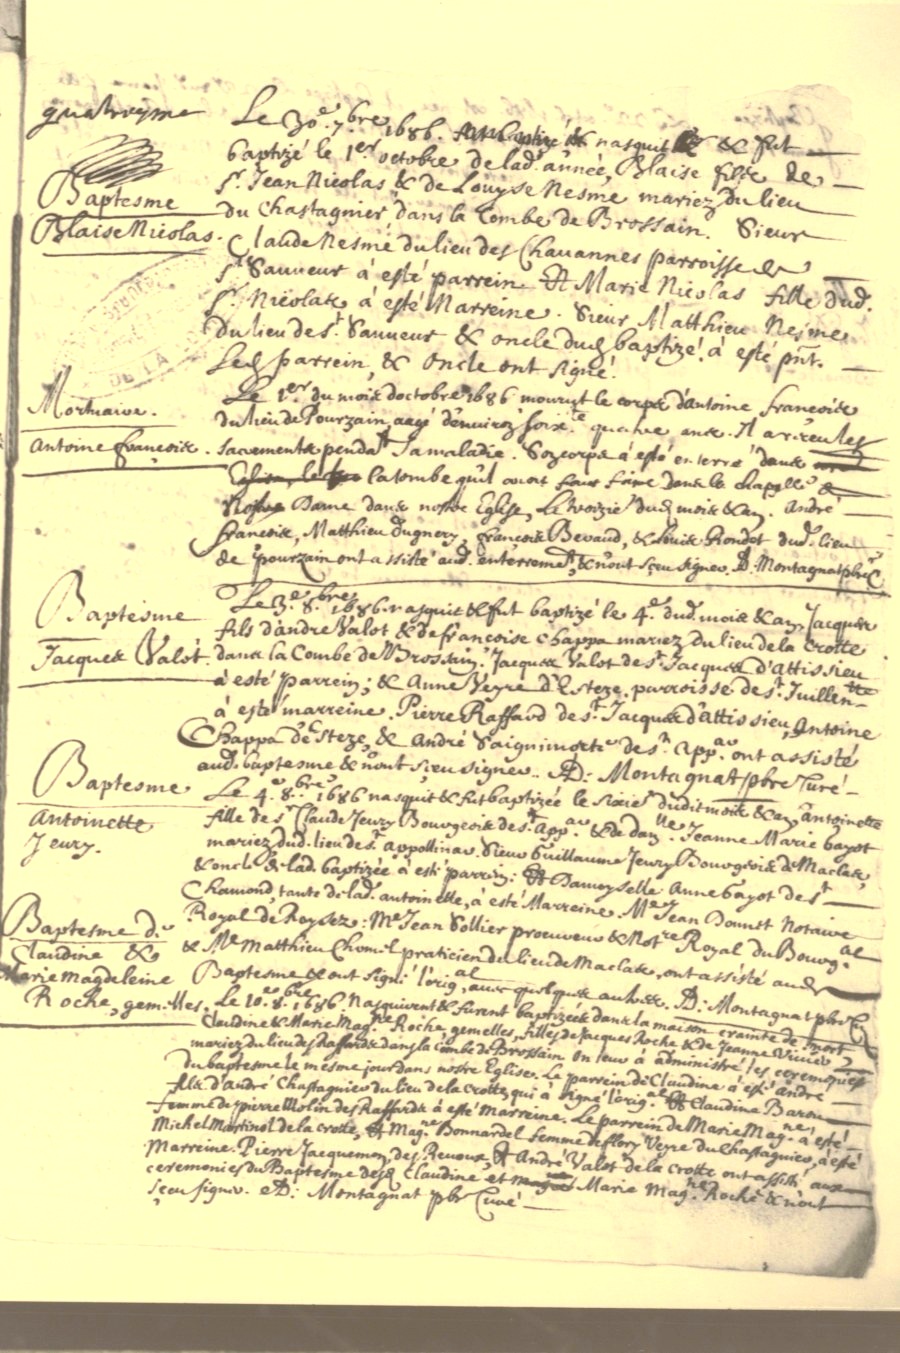 quatrieme
Baptesme
Blaise Nicolas.
Le 30.e 7.bre 1686. nasquit & fut
baptizé le 1.er octobre de lad. année, Blaise fils de
s.r Jean Nicolas & de Louyse Nesme mariez du lieu
du Chastagnier dans la Combe de Brossain. Sieur
Claude Nesme du lieu des Chavannes parroisse de
s.t Sauveur à esté parrein Et Marie Nicolas fille dud.
s.r Nicolas à esté Marreine. Sieur Matthieu Nesme
du lieu de s.t Sauveur & oncle dud baptizé à esté pnt.
Lesd parrein, & oncle ont signé.
Mortuaire.
antoine francois.
Le 1.er du mois doctobre 1686 mourut le corps d'antoine francois
du lieu de Pourzain aagé d'environ soix.te quatre ans. Il a receu les
sacrements pendat sa maladie. Son corps à esté enterré dans
la tombe qu'il avoit faict faire dans la chapelle de
Nostre Dame dans nostre Eglise, Le troizie dud mois & an. André
francois, Matthieu Dugnery, francois Beraud, & Louis Rondet dud. lieu
de pourzain ont assisté aud. enterremet, & n'ont sçeu signer. D. Montagnat pbre C
Baptesme
Jacques Valot.
Le 3.e 8.bre 1686. nasquit & fut baptizé le 4.e dud. mois & an, Jacques
fils d'andré Valot & de francoise Chappa mariez du lieu de la Crotte
dans la Combe de Brossain. Jacques Valot de s.t Jacques d'attissieu
à esté parrein; & Anne Veyre d'Esteze, parroisse de s.t Juillen
à esté marreine. Pierre Raffard de s.t Jacques d'attissieu, Antoine
Chappa d'Esteze, & André Saignimorte de s.t app.ar ont assisté
aud. baptesme & n'ont sçeu signer. D: Montagnat pbre Curé
Baptesme
Antoinette
Jeury.
Le 4.e 8.bre 1686 nasquit & fut baptizée le sixie dudit mois & an, antoinette
fille de s.r Claude Jeury Bourgeois de s.t app.ar & de dam.lle Jeanne Marie bayot
mariez dud. lieu de s.t appollinar. Sieur Guillaume Jeury Bourgeois de Maclas,
& oncle de lad. baptizée à esté parrein: Et Damoyselle Anne bayot de s.t
Chamond, tante de lad. antoinette, à esté Marreine. M.e Jean Donnet Notaire
Royal de Roysez: M.e Jean Sollier procureur & Not.re Royal du Bourg.al
& M.e Matthieu Chomel praticien du lieu de Maclas, ont assisté aud
Baptesme & ont signé l'orig.al avec quelques autres. D: Montagnat pbre C
Baptesme de
Claudine &
Marie Magdeleine
Roche, gemelles.
Le 10.e 8.bre 1686 Nasquirent & furent baptizées dans la maison crainte de mort
Claudine & Marie Mag.ne Roche, gemelles, filles de Jacques Roche & de Jeanne
mariez du lieu des Raffards dans la Combe de Brossain. On leur à administré les ceremonies
du baptesme le mesme jour dans nostre Eglise. Le parrein de Claudine à esté andré
fils d'André Chastagnier du lieu de la Crotte, qui à signé l'orig.al Et Claudine Barou
femme de pierre Molin des Raffards à esté Marreine. Le parrein de Marie Mag.ne à esté
Michel Martinol de la crotte, Et Mag.ne Bonnardel femme de flory Veyre du Chastagnier, à esté
Marreine. Pierre Jacquemon, des Revoux, & André Valot de la crotte ont assisté aux
ceremonies du Baptesme desd. Claudine et Marie Mag.ne Roche & n'ont
sçeu signer. D: Montagnat pbre Curé